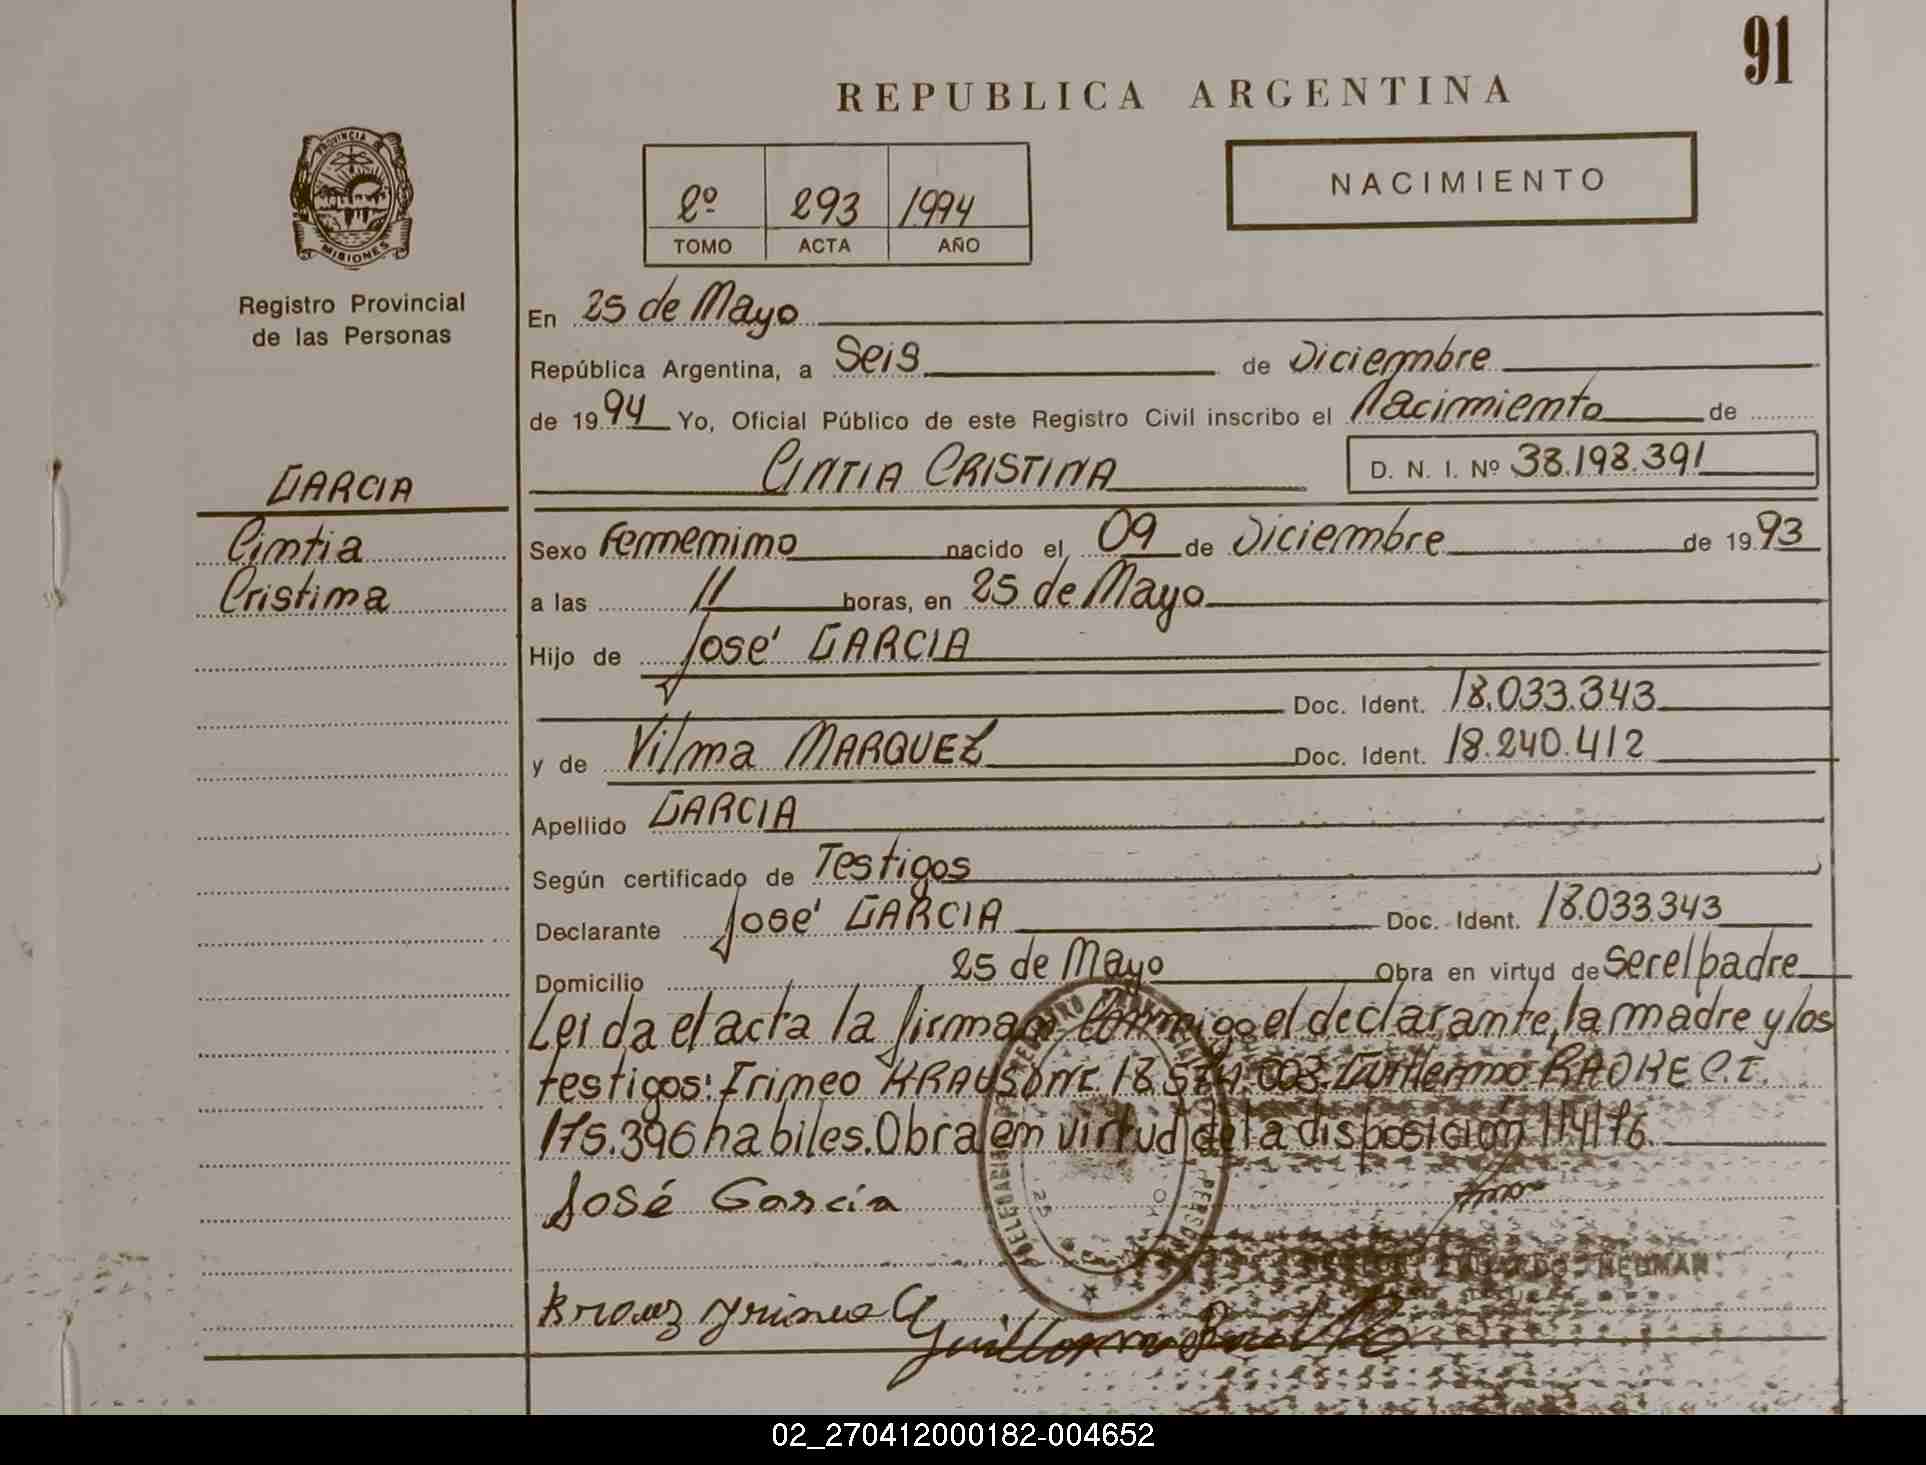 91
REPUBLICA ARGENTINA
PROVINCIA DE
MISIONES
Registro Provincial
de las Personas
2º 293 1994
TOMO ACTA AÑO
NACIMIENTO
En 25 de Mayo
República Argentina, a Seis de Diciembre
de 1994 Yo, Oficial Público de este Registro Civil inscribo el Nacimiento de
CINTIA CRISTINA D. N. I. Nº 38.198.391
GARCIA
Cintia
Cristina
Sexo Femenino nacido el 09 de Diciembre de 1993
a las 11 horas, en 25 de Mayo
Hijo de José GARCIA
Doc. Ident. 18.033.343
y de Vilma MARQUEZ Doc. Ident. 18.240.412
Apellido GARCIA
Según certificado de Testigos
Declarante José GARCIA Doc. Ident. 18.033.343
Domicilio 25 de Mayo Obra en virtud de ser el padre
Leida el acta la firman conmigo el declarante, la madre y los
testigos: Irineo KRAUS DNI. 18.574.003. Guillermo C.I.
175.396 habiles. Obra en virtud de la disposición 114/76.
José Garcia
NEUMAN
02_270412000182-004652